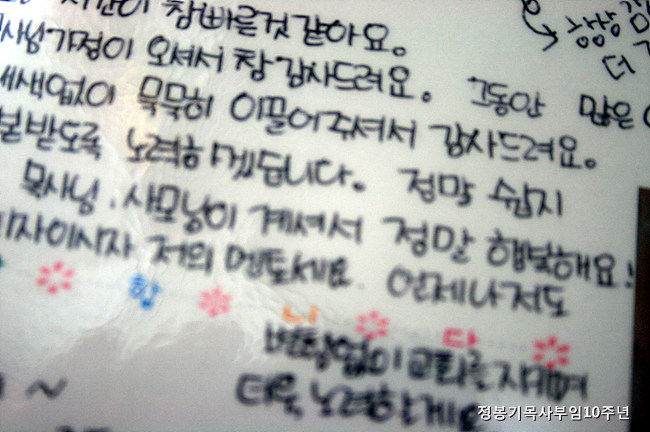 시간이 참빠른것같아요.
사님가정이 오셔서 참감사드려요. 그동안 많은
내색없이 묵묵히 이끌어주셔서 감사드려요.
본받도록 노력하겠듭니다. 정막 쉽지
목사님, 사모님이 계셔서 정말 행복해요!
이자이시자 저의 멘토세요. 언제나저도
합 니 다
변함없이 교회를지키며
더욱 노력할게요
~
항상
더
정봉기목사부임10주년